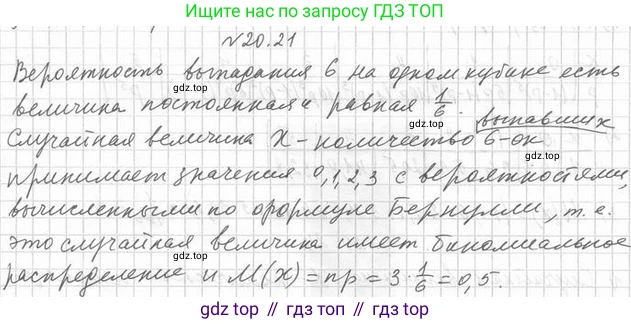 Ищите нас по запросу ГДЗ ТОП
№20.21
Вероятность выпадания 6 на одном кубике есть
gdz.top gdz.top
величина постоянная и равная 1/6.
выпавших
Случайная величина X - количество 6-ок
gdz.top
принимает значения 0,1,2,3 с вероятностями,
gdz.top
вычисленными по формуле Бернулли, т.е.
gdz.top
это случайная величина имеет биномиальное
распределение и M(X) = np = 3 · 1/6 = 0,5.
gdz.top
gdz top | gdz top | gdz top